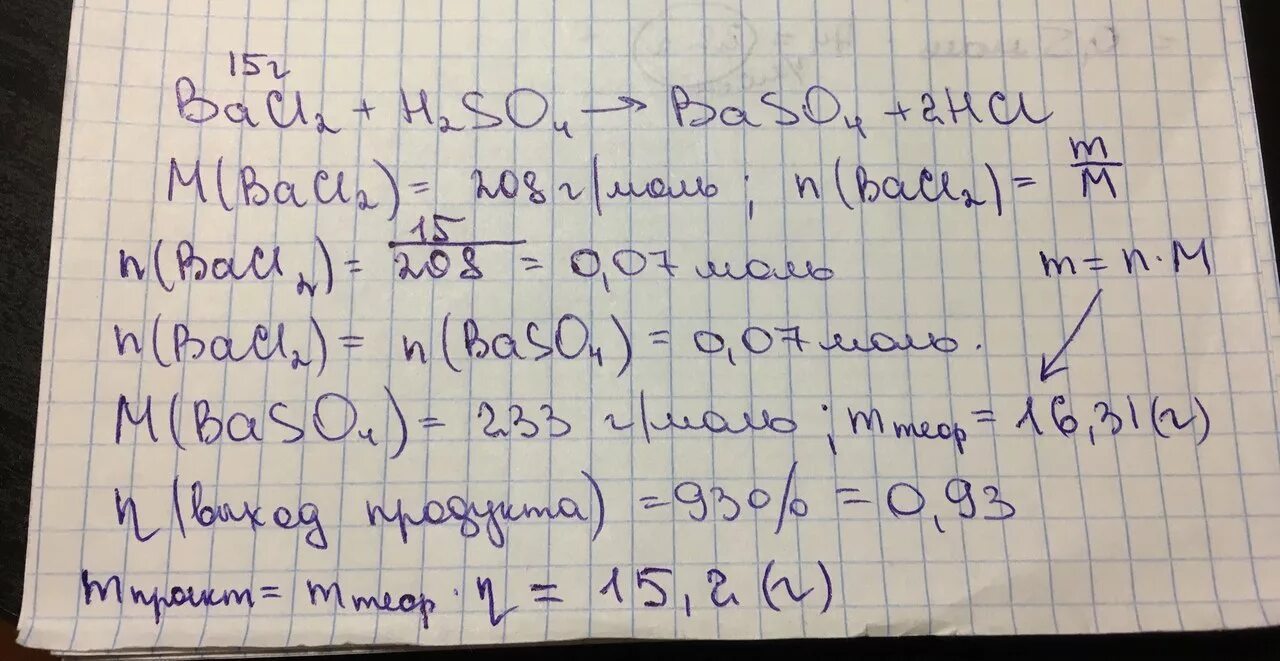 15г
BaCl₂ + H₂SO₄ → BaSO₄ + 2HCl
M(BaCl₂) = 208 г/моль; n(BaCl₂) = m/M
n(BaCl₂) = 15/208 = 0,07 моль
m = n·M
n(BaCl₂) = n(BaSO₄) = 0,07 моль.
M(BaSO₄) = 233 г/моль; mтеор = 16,31(г)
η (выход продукта) = 93% = 0,93
mпракт = mтеор · η = 15,2 (г)